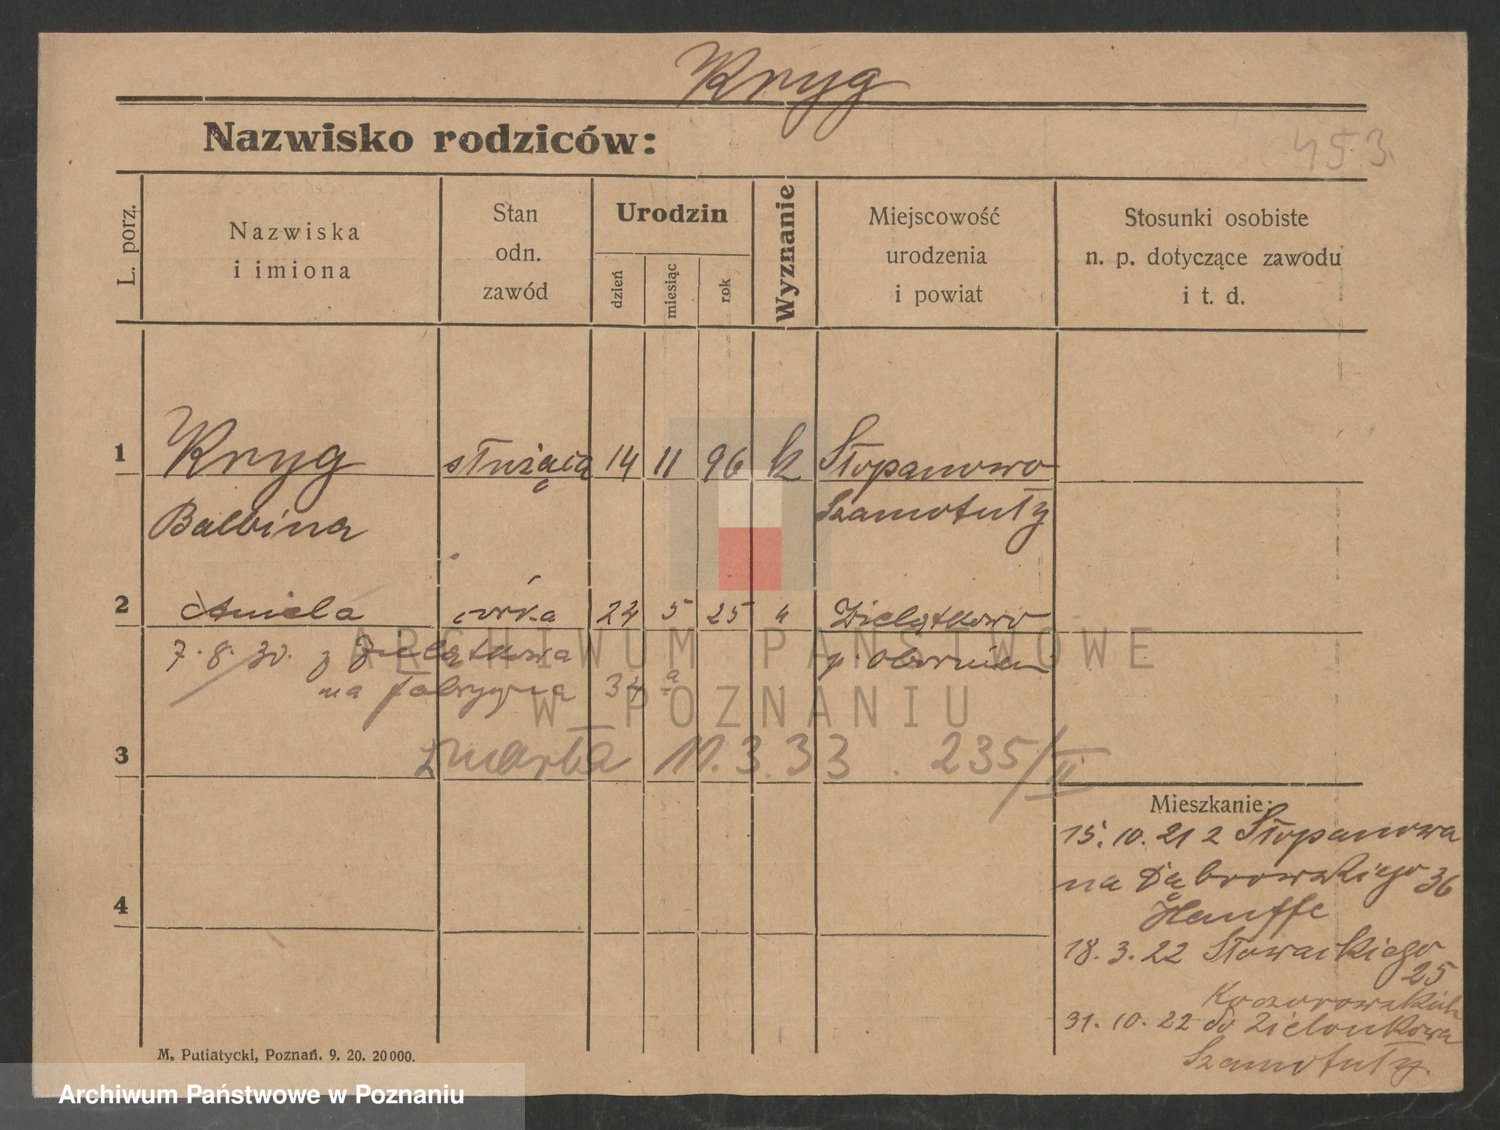 Kryg
Nazwisko rodziców:
453
L. porz.
Nazwiska
i imiona
Stan
odn.
zawód
Urodzin
dzień
miesiąc
rok
Wyznanie
Miejscowość
urodzenia
i powiat
Stosunki osobiste
n. p. dotyczące zawodu
i t. d.
1 Kryg służąca 14 11 96 k Słopanowo
Balbina Szamotuły
2 Aniela córka 24 5 25 " Zielątkowo
7. 8. 30. z Zielątkowa p. Obornik
na Fabryczną 34 a
3 zmarła 11. 3. 33. 235/II
4
Mieszkanie:
15. 10. 21 z Słopanowa
na Dąbrowskiego 36
Hauffe
18. 3. 22 Słowackiego
25
31. 10. 22 do Zielonkowa
Szamotuły
M. Putiatycki, Poznań. 9. 20. 20000.
ARCHIWUM PAŃSTWOWE
W POZNANIU
Archiwum Państwowe w Poznaniu